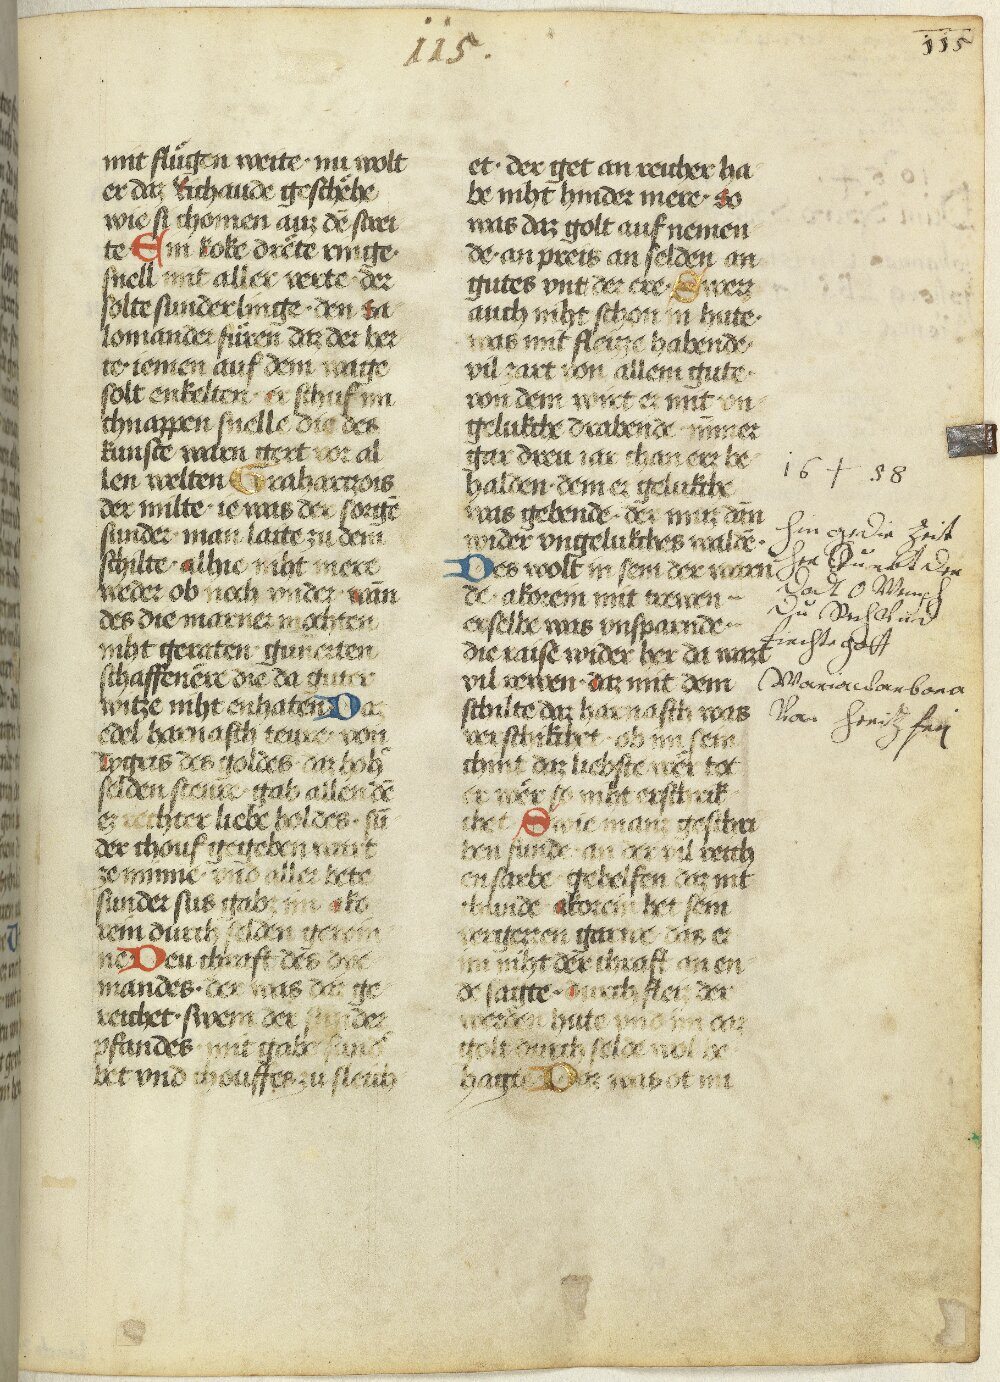 115.
115
mit flügen weite · nu wolt
er daz Kichaude geschehe
wie si chomen auz dē strei
te Ein koke drete ringe ·
snell mit aller verte · der
solte sunderlinge · den sa
lomander fůren daz der her
te · iemen auf dem wage
solt enkelten · er schuf im
chnappen snelle die des
kunste warn gert vor al
len welten Graharzois
der milte · ie was der sorge
sunder · man laite zu dem
schilte · allne niht mere
weder ob noch vnder · wan
des die marner mochten
niht geraten · gunerten
schaffenere die da guter
witze niht enhaten Daz
edel harnasch teure · von
des goldes · daz hoh
selden steure · gab allen dē
er rechter liebe holdes · sū
der chouf gegeben wart
ze minne · vnd aller hete
sunder sus gabz im ako
rein durch selden
ne Deu chraft des
mandes · der was daz ge
reichet · swem der sunder
pfandes · mit gabe
het vnd chouffes zu sleich
et · der get an reicher ha
be niht hinder mere · so
was daz golt auf nemen
de · an preis an selden an
gutes vnt der ere · Swerz
auch niht schon in hute ·
was mit fleizze habende ·
vil zart von allem gute ·
von dem wirt er mit vn
gelukche drabende · immer
gar dreu iar chan erz be
halden · dem ez gelukche
was gebende · der muz dan
wider vngelukches walde ·
Des wolt in sein der warn
de · akorein mit trewen
erselbe was vnsparnde
die raise wider her da wart
vil rewen · daz mit dem
schilte daz harnasch was
verschikchet · ob im sein
chint daz liebste wer tot
er wer so niht erschrik
chet Swie manz geschri
ben funde · an der vil reich
en sarbe · gehelfen daz nit
chunde akorein het sein
vergezzen garwe · das er
im niht der chraft an en
de sagte · durch fleiz der
werden hute vnd im daz
golt durch selde wol be
hagte Daz was ot nu
16 + 58
Maria Barbara
Von